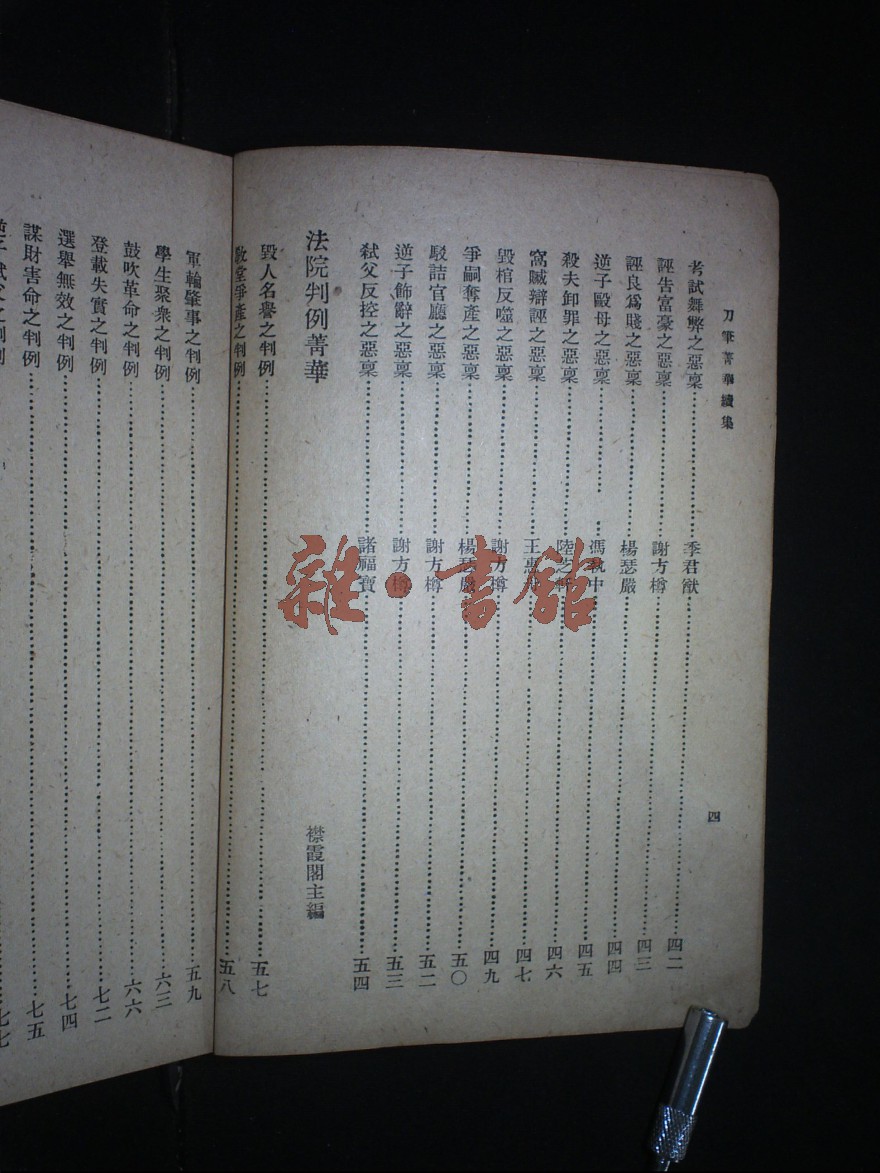 刀筆菁華續集
四
考試舞弊之惡稟 季君猷 四二
誣告富豪之惡稟 謝方樽 四三
誣良爲賤之惡稟 楊瑟嚴 四四
逆子毆母之惡稟 馮執中 四五
殺夫卸罪之惡稟 陸 四六
窩贓辯誣之惡稟 王惠 四七
毀棺反噬之惡稟 謝方樽 四九
爭嗣奪產之惡稟 楊瑟嚴 五〇
駁詰官廳之惡稟 謝方樽 五二
逆子飾辭之惡稟 謝方樽 五三
弒父反控之惡稟 諸福寶 五四
法院判例菁華 襟霞閣主編
毀人名譽之判例 五七
教堂爭產之判例 五八
軍輪肇事之判例 五九
學生聚衆之判例 六三
鼓吹革命之判例 六六
登載失實之判例 七二
選舉無效之判例 七四
謀財害命之判例 七五
逆子弒父之判例 七七
雜·書館